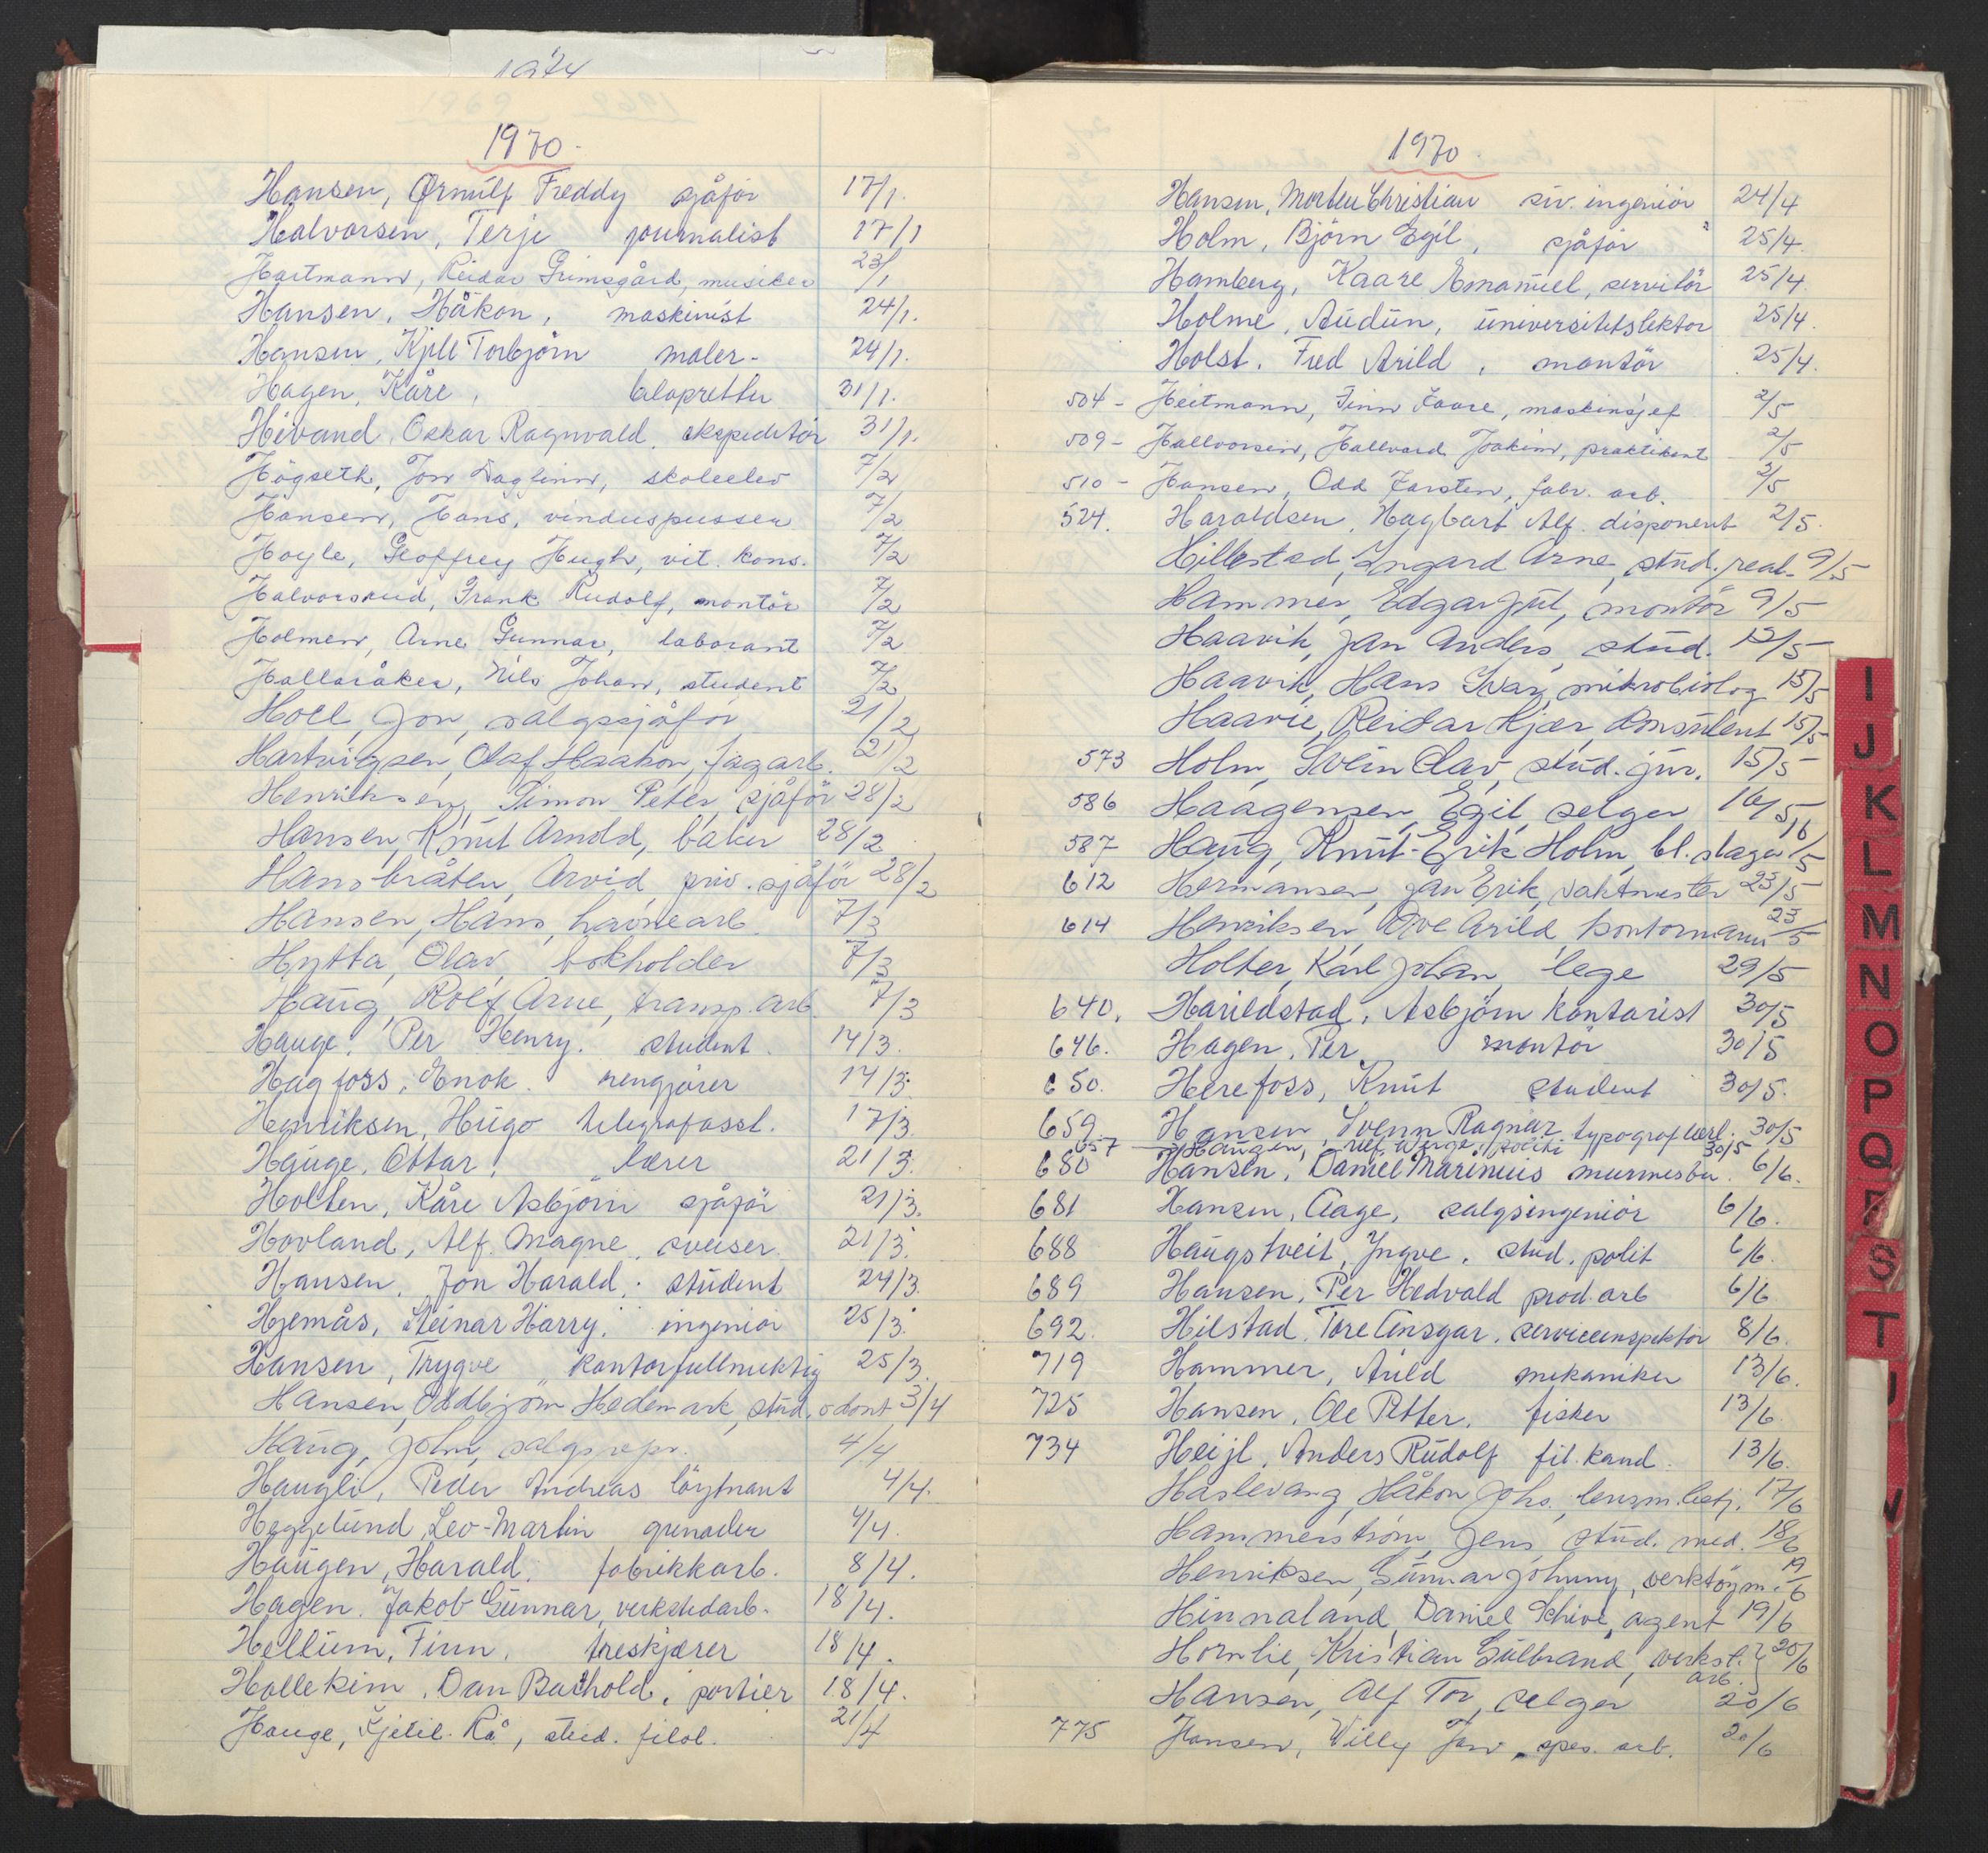 1974
1970.
Hansen, Ørnulf Freddy sjåfør 17/1.
Halvorsen, Terje journalist 17/1
Hartmann, Reidar Grimsgård, musiker 23/1
Hansen, Håkon, maskinist 24/1.
Hansen, Kjell Torbjörn maler- 24/1.
Hagen, Kåre, 31/1.
Hivand, Oskar Ragnvald, ekspeditör 31/1.
Högseth, Jon Dagfinn, skoleelev 7/2
Hansen, Hans, vinduspusser 7/2
Hoyle, Geoffrey Hugh, vit. kons. 7/2
Halvorsrud, Frank Rudolf, montör 7/2
Holmen, Arne Gunnar, laborant 7/2
Hallaråker, Nils Johan, student 7/2
Holl, Jon, salgssjåför 21/2
Hartvigsen, Olaf Haakon, fagarb. 21/2
Henriksen, Simon Peter, sjåför 28/2
Hansen, Knut Arnold, baker 28/2
Hansbråten, Arvid priv. sjåför 28/2
Hansen, Hans, havnearb. 7/3
Hytta, Olav, bokholder 7/3
Haug, Rolf Arne, transp. arb. 7/3
Hauge, Per Henry. student. 14/3.
Hagfoss, Enok. rengjører 14/3.
Henriksen, Hugo telegrafasst. 17/3.
Hauge, Ottar, lærer 21/3.
Holten, Kåre Asbjörn sjåför 21/3.
Hovland, Alf Magne, sveiser. 21/3.
Hansen, Jon Harald, student 24/3.
Hjemås, Steinar Harry, ingeniör 25/3.
Hansen, Trygve kontorfullmektig 25/3.
Hansen, Oddbjörn Hedemark, stud. odont 3/4
Haug, John, salgsrepr. 4/4
Haugli, Peder Andreas löytnant 4/4.
Heggelund, Leo-Martin grenader 4/4.
Haugen, Harald, fabrikkarb. 8/4.
Hagen, Jakob Gunnar, verkstedarb. 18/4.
Hellum, Finn, treskjærer 18/4.
Hallekim, Dan Bachold, portier 18/4.
Hauge, Kjetil Rå, stud. filol. 21/4
1970.
Hansen, Morten Christian siv. ingeniör 24/4
Holm, Björn Egil, sjåför 25/4.
Hamberg, Kaare Emanuel, servitör 25/4.
Holme, Audun, universitetslektor 25/4.
Holst, Fred Arild, montör 25/4.
504- Heitmann, Finn Kaare, maskinsjef 2/5
509- Hallvorsen, Hallvard Joakim, praktikant 2/5
510- Hansen, Odd Karsten, fabr. arb. 2/5
524. Haraldsen, Hagbart Alf. disponent 2/5.
Hillestad, Ingard Arne, stud. real. 9/5
Hammer, Edgar Jul, montör 9/5
Haavik, Jan Anders, stud. 15/5
Haavik, Hans Ivar, mikrobiolog 15/5
Haavie, Reidar Kjær, konsulent 15/5
573 Holm, Svein Olav, stud. jur. 15/5
586 Haagensen, Egil, selger 16/5
587 Haug, Knut-Erik Holm, bl. slager 16/5
612 Hermansen, Jan Erik, vaktmester 23/5
614 Henriksen, Ove Arild, kontormann 23/5
Holter, Karl Johan, lege 29/5
640. Harildstad, Asbjörn kontorist 30/5
646. Hagen, Per montör 30/5
650. Herefoss, Knut student 30/5.
659 Hansen, Svenn Ragnar typograflærl. 30/5
657 Haugen, 30/5
680 Hansen, Daniel Marinius murmester. 6/6.
681 Hansen, Aage, salgsingeniör 6/6.
688 Haugstveit, Yngve, stud. polit 6/6.
689 Hansen, Per Hedvald prod. arb 6/6
692. Hilstad, Tore Ansgar, serviceinspektör 8/6.
719 Hammer, Arild mekaniker 13/6.
725 Hansen, Ole Petter, fisker 13/6.
734 Heijl, Anders Rudolf fil. kand. 13/6.
Haslevang, Håkon Johs, lensm. betj. 17/6
Hammerström, Jens, stud. med. 18/6
Henriksen, Gunnar Johnny, verktöym. 19/6
Hinnaland, Daniel Schive, agent 19/6
Hornlie, Kristian Gulbrand, verkst. arb. 20/6
Hansen, Alf Tor, selger 20/6
775 Hansen, Willy Jan, spes. arb. 20/6
I
J
K
L
M
N
O
P
Q
R
S
T